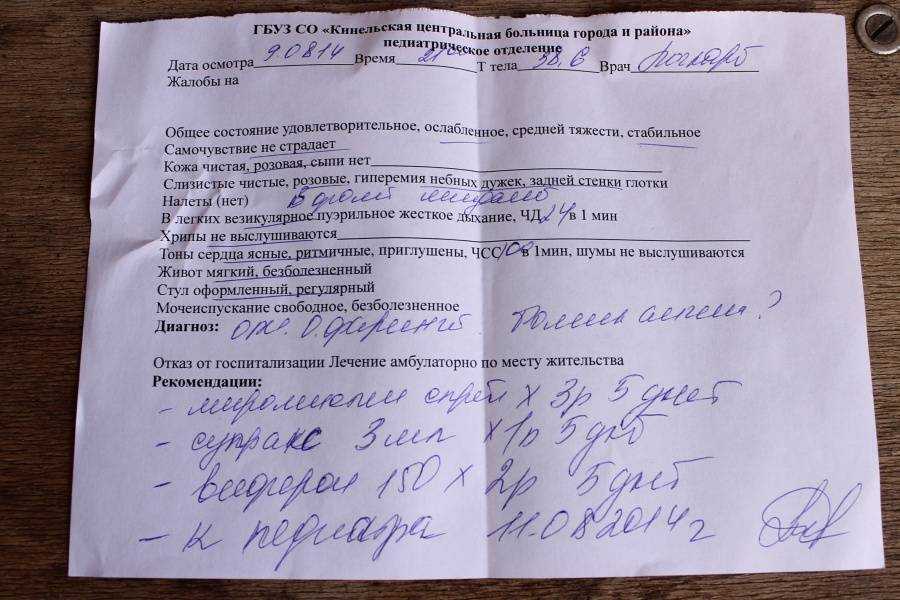 ГБУЗ СО «Кинельская центральная больница города и района»
педиатрическое отделение
Дата осмотра 9.08.14 Время 21 00 Т тела 38,6 Врач
Жалобы на
Общее состояние удовлетворительное, ослабленное, средней тяжести, стабильное
Самочувствие не страдает
Кожа чистая, розовая, сыпи нет
Слизистые чистые, розовые, гиперемия небных дужек, задней стенки глотки
Налеты (нет)
В легких везикулярное пуэрильное жесткое дыхание, ЧД 24 в 1 мин
Хрипы не выслушиваются
Тоны сердца ясные, ритмичные, приглушены, ЧСС 100 в 1мин, шумы не выслушиваются
Живот мягкий, безболезненный
Стул оформленный, регулярный
Мочеиспускание свободное, безболезненное
Диагноз: О.фарингит.
Отказ от госпитализации Лечение амбулаторно по месту жительства
Рекомендации:
- спрей х 3р 5 дней
- супракс 3 мл х 1р 5 дней
- виферон 150 х 2р 5 дней
- к педиатру 11.08.2014 г